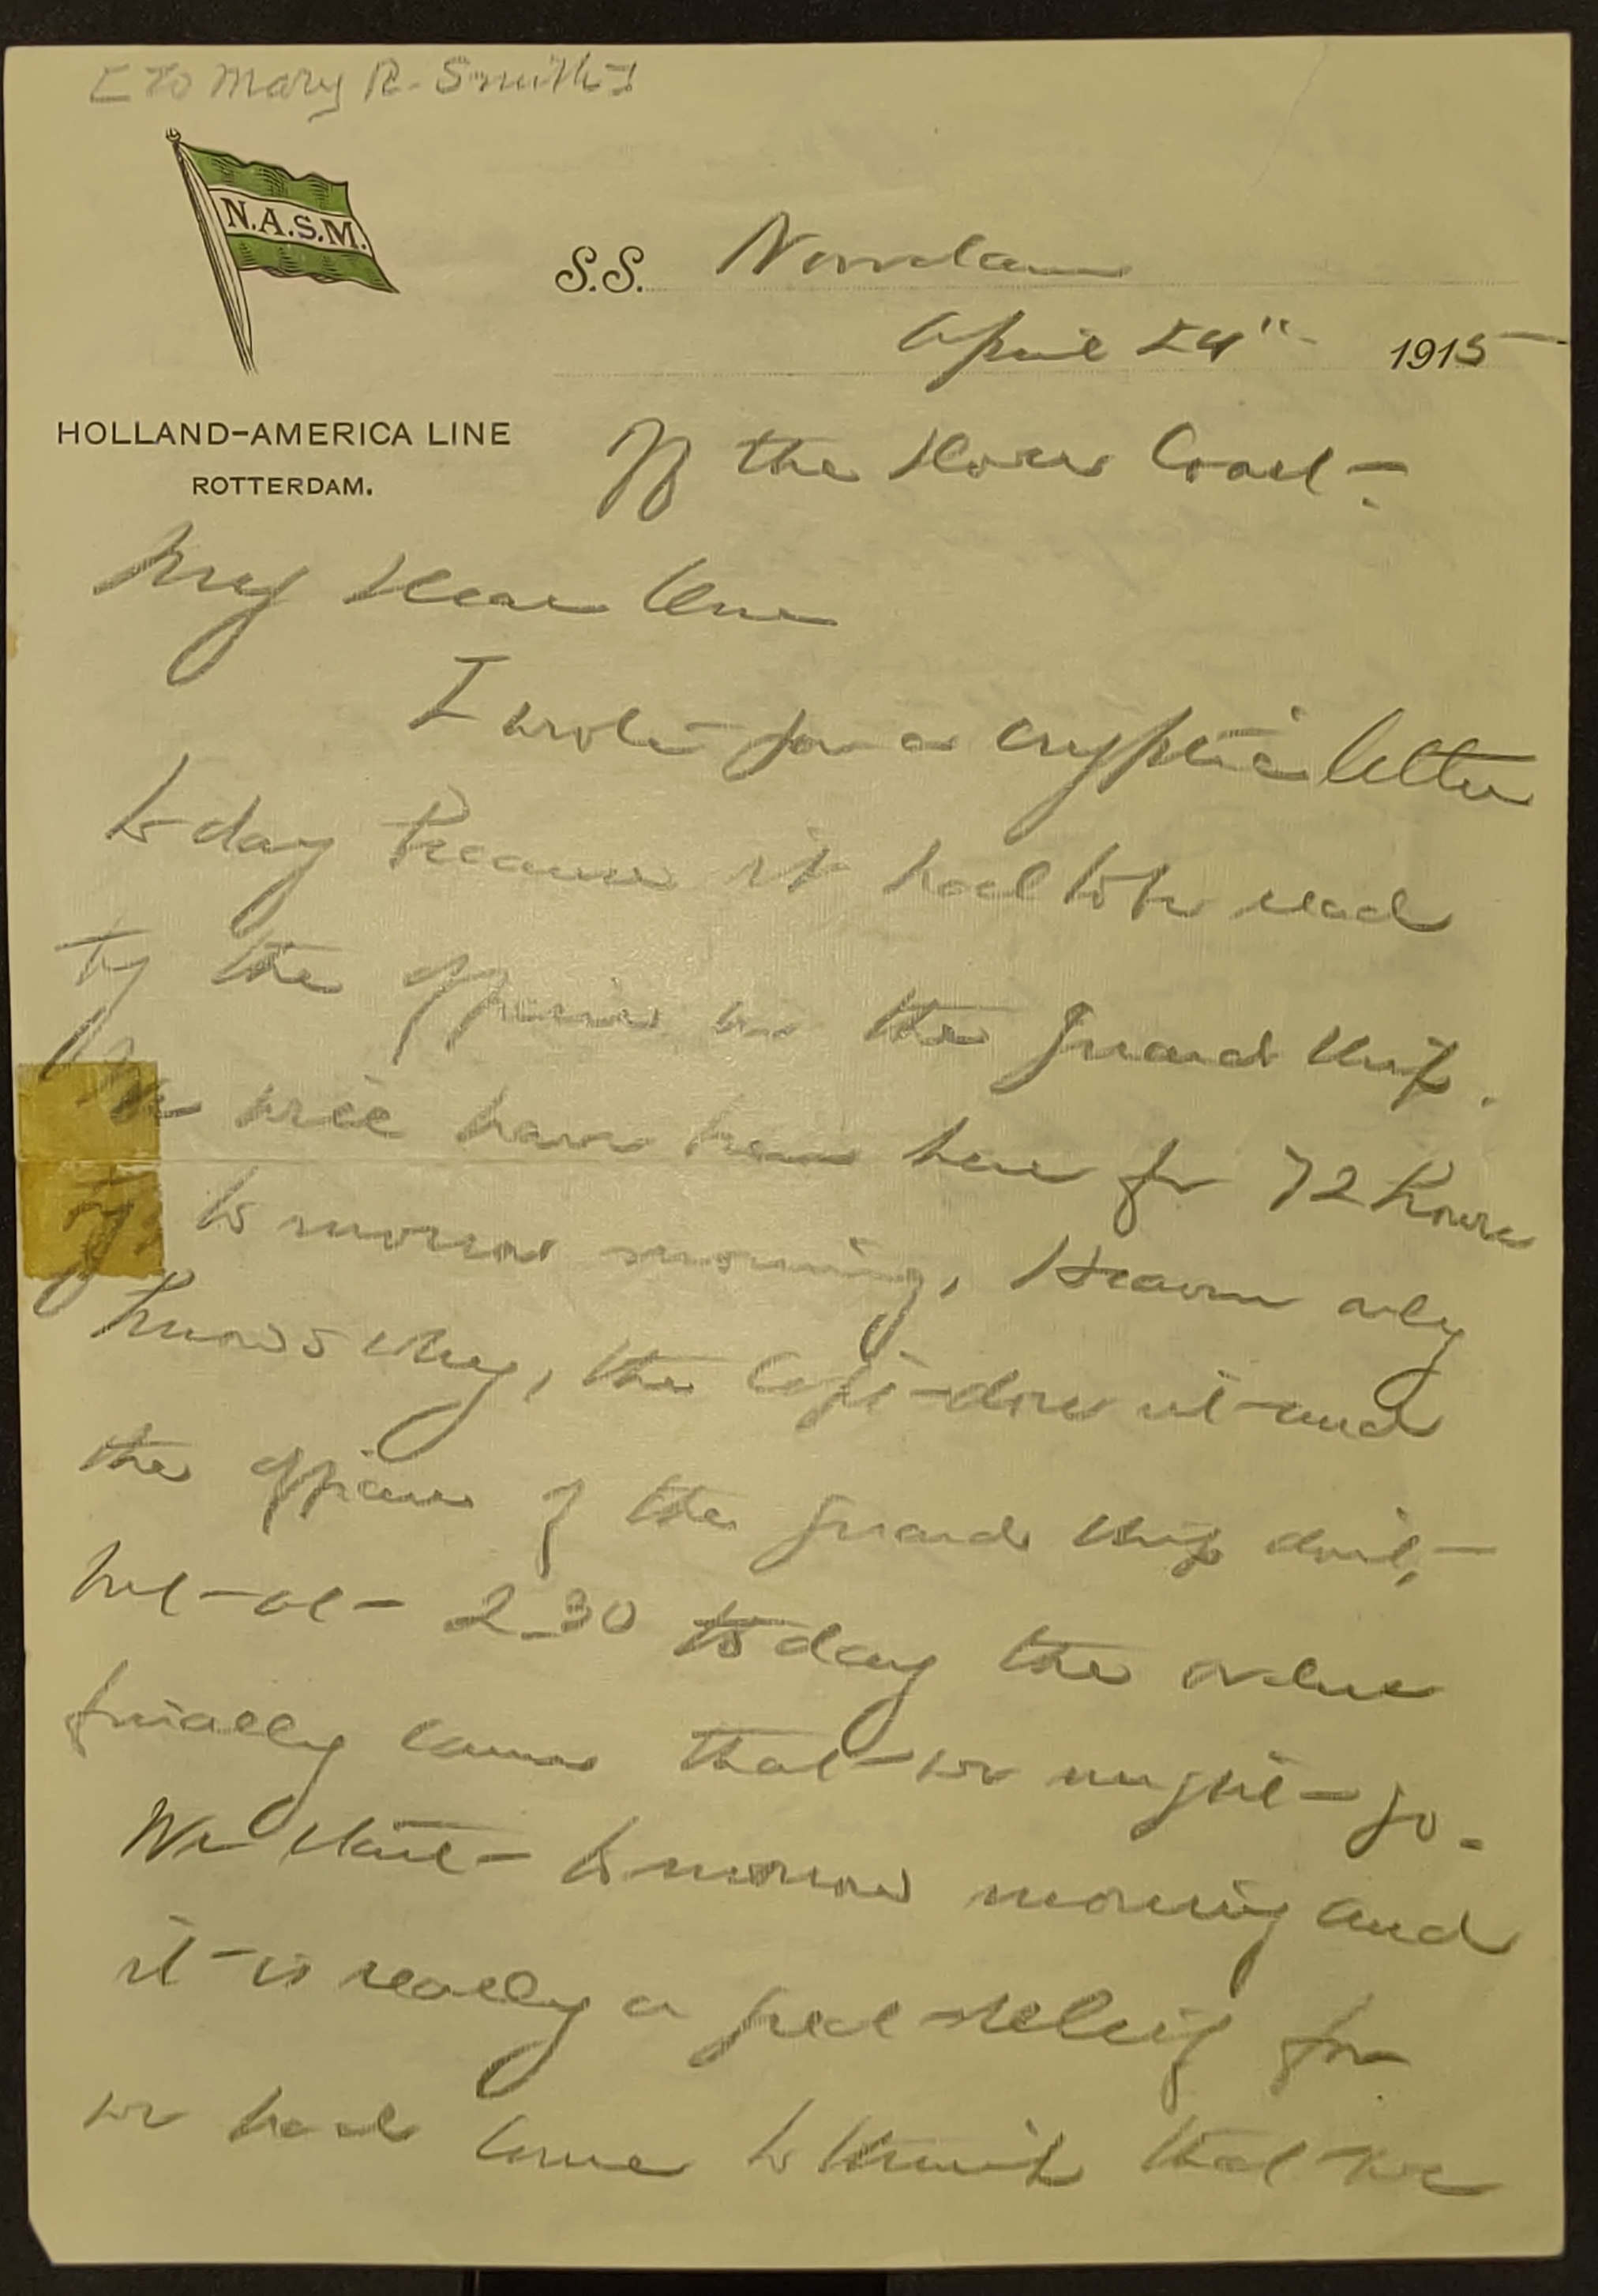 [to Mary R. Smith]
N.A.S.M.
S.S. Noordam
April 24" 1915
HOLLAND-AMERICA LINE
ROTTERDAM.
Off the Dover Coast -
My dear One
I wrote you a cryptic letter
today because it had to be read
by the officers on the guard ship.
We will have been here for 72 hours
by tomorrow morning, Heaven only
knows why, the Capt- does not and
the officers of the guard ship don't,-
but at 2.30 today the order
finally came that we might go.
We start tomorrow morning and
it is really a great relief for
we had come to think that we